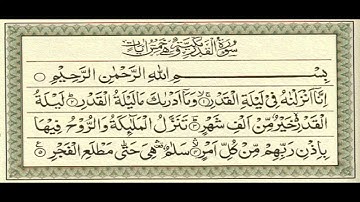 سُوْرَةُ الْقَدْرِ مَكِّيَّةٌ وَّهِيَ خَمْسُ اٰيَاتٍ
بِسْمِ اللّٰهِ الرَّحْمٰنِ الرَّحِيْمِ ○
اِنَّاۤ اَنْزَلْنٰهُ فِیْ لَیْلَةِ الْقَدْرِ وَمَاۤ اَدْرٰىكَ مَا لَیْلَةُ الْقَدْرِ لَیْلَةُ
الْقَدْرِ خَیْرٌ مِّنْ اَلْفِ شَهْرٍ تَنَزَّلُ الْمَلٰٓىِٕكَةُ وَالرُّوْحُ فِیْهَا
بِاِذْنِ رَبِّهِمْ مِّنْ كُلِّ اَمْرٍ سَلٰمٌ هِیَ حَتّٰى مَطْلَعِ الْفَجْرِ